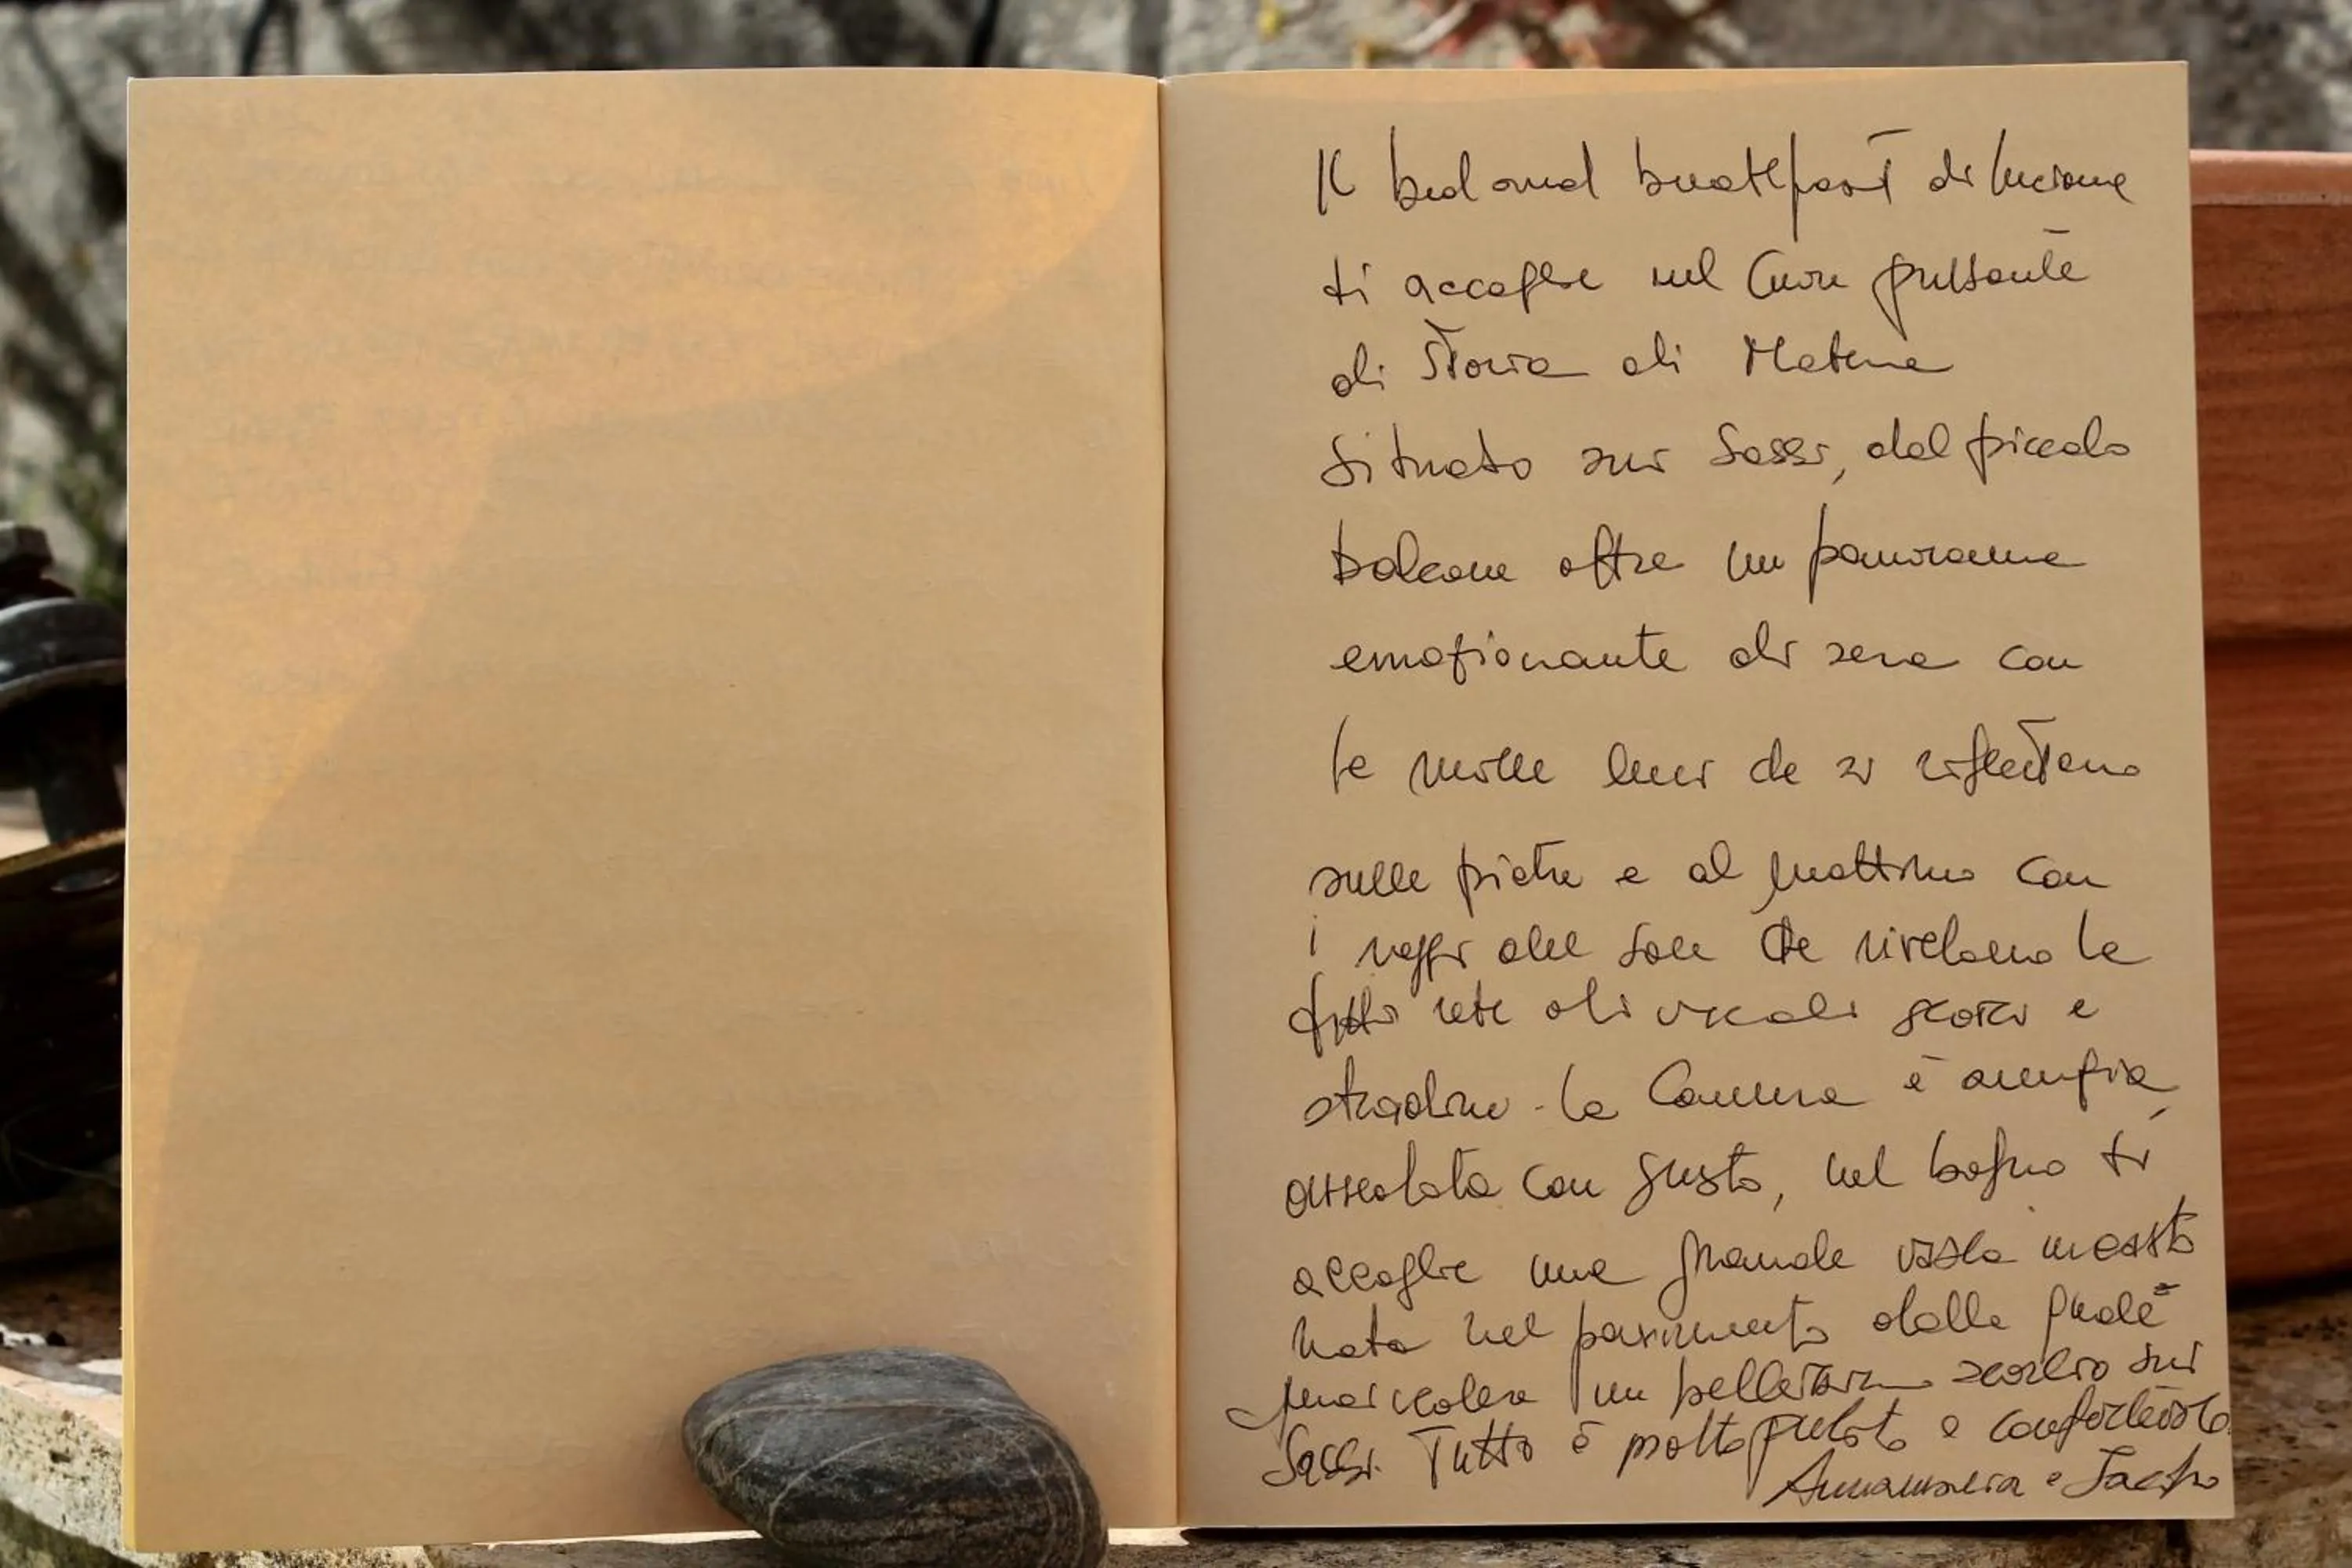 Il bed and breakfast di Luciana
ti accoglie nel Cuore pulsante
di Storia di Matera
situato sui Sassi, dal piccolo
balcone offre un panorama
emozionante di sera con
le mille luci che si riflettono
sulle pietre e al mattino con
i raggi del sole che rivelano le
fitti rete di vicoli scorci e
stradine. la Camera è ampia,
arredata con gusto, nel bagno ti
accoglie una grande vasca incasto
nata nel pavimento dalla quale
puoi vedere un bellissimo scorcio sui
Sassi. Tutto è molto pulito e confortevole.
Annamaria e Jacopo